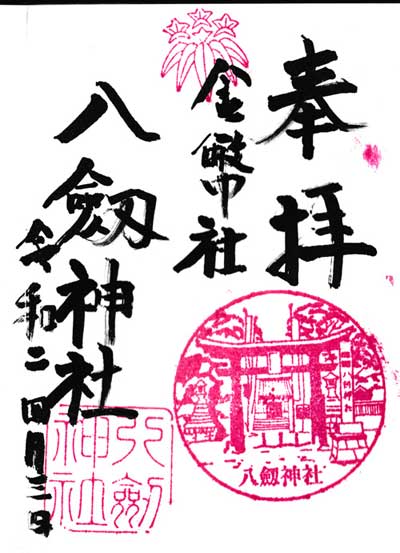 奉拝
金幣社
八劔神社
令和二四月三日
八劔神社
八劔神社